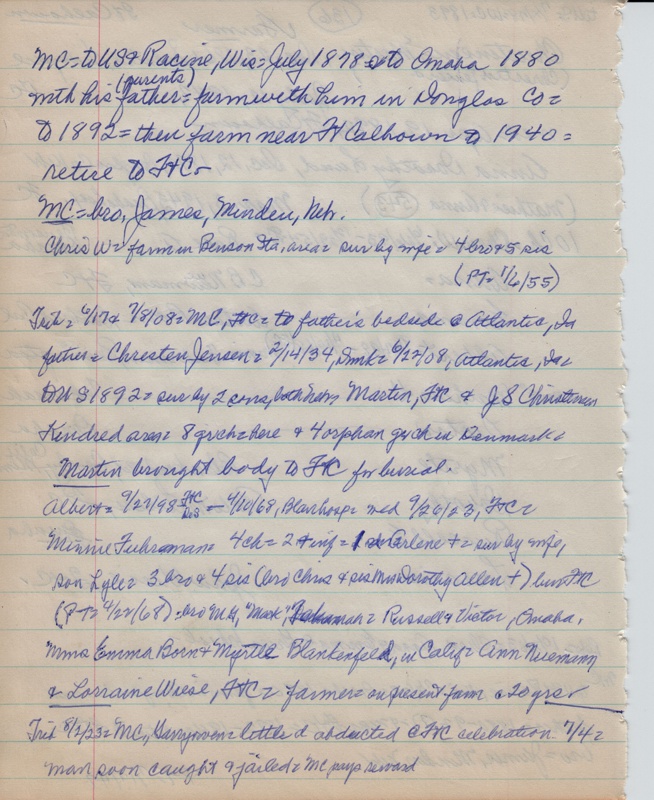 MC = to US & Racine, Wis = July 1878 to Omaha 1880
with his father = farm with him in Douglas Co =
(parents)
to 1892 = then farm near Ft Calhoun to 1940 =
retire to FtC -
MC = bro, James, Minden, Neb.
Chris W = farm in Benson Sta, area = sur by wife = 4 bro & 5 sis
(PT = 1/6/55)
Trib = 6/17 & 7/8/08 = MC, FtC = to father's bedside @ Atlantic, Ia
father = Chresten Jensen = 2/14/34, Dmk = 6/22/08, Atlantic, Ia =
to US 1892 = sur by 2 sons, both here, Martin, FtC & J S Christensen
Kindred area = 8 grch = here & 4 orphan grch in Denmark =
Martin brought body to FtC for burial.
Albert = 9/27/98 FtC - 4/10/68, Blair hosp = med 9/26/23, FtC =
Minnie Fuhrman = 4 ch = 2 + inf = 1 Arlene + = sur by wife,
son Lyle = 3 bro & 4 sis (bro Chris & sis Mrs Dorothy Allen +) bur FtC
(PT = 4/22/68) = bro MC, "Mack", = Russell & Victor, Omaha,
Mmes Emma Born & Myrtle Blankenfeld, in Calif = Ann Niemann
& Lorraine Wiese, FtC = farmer = on present farm @ 20 yrs -
Trib 8/2/23 = MC, = little d abducted @ FtC celebration 7/4 =
man soon caught & jailed = MC pays reward